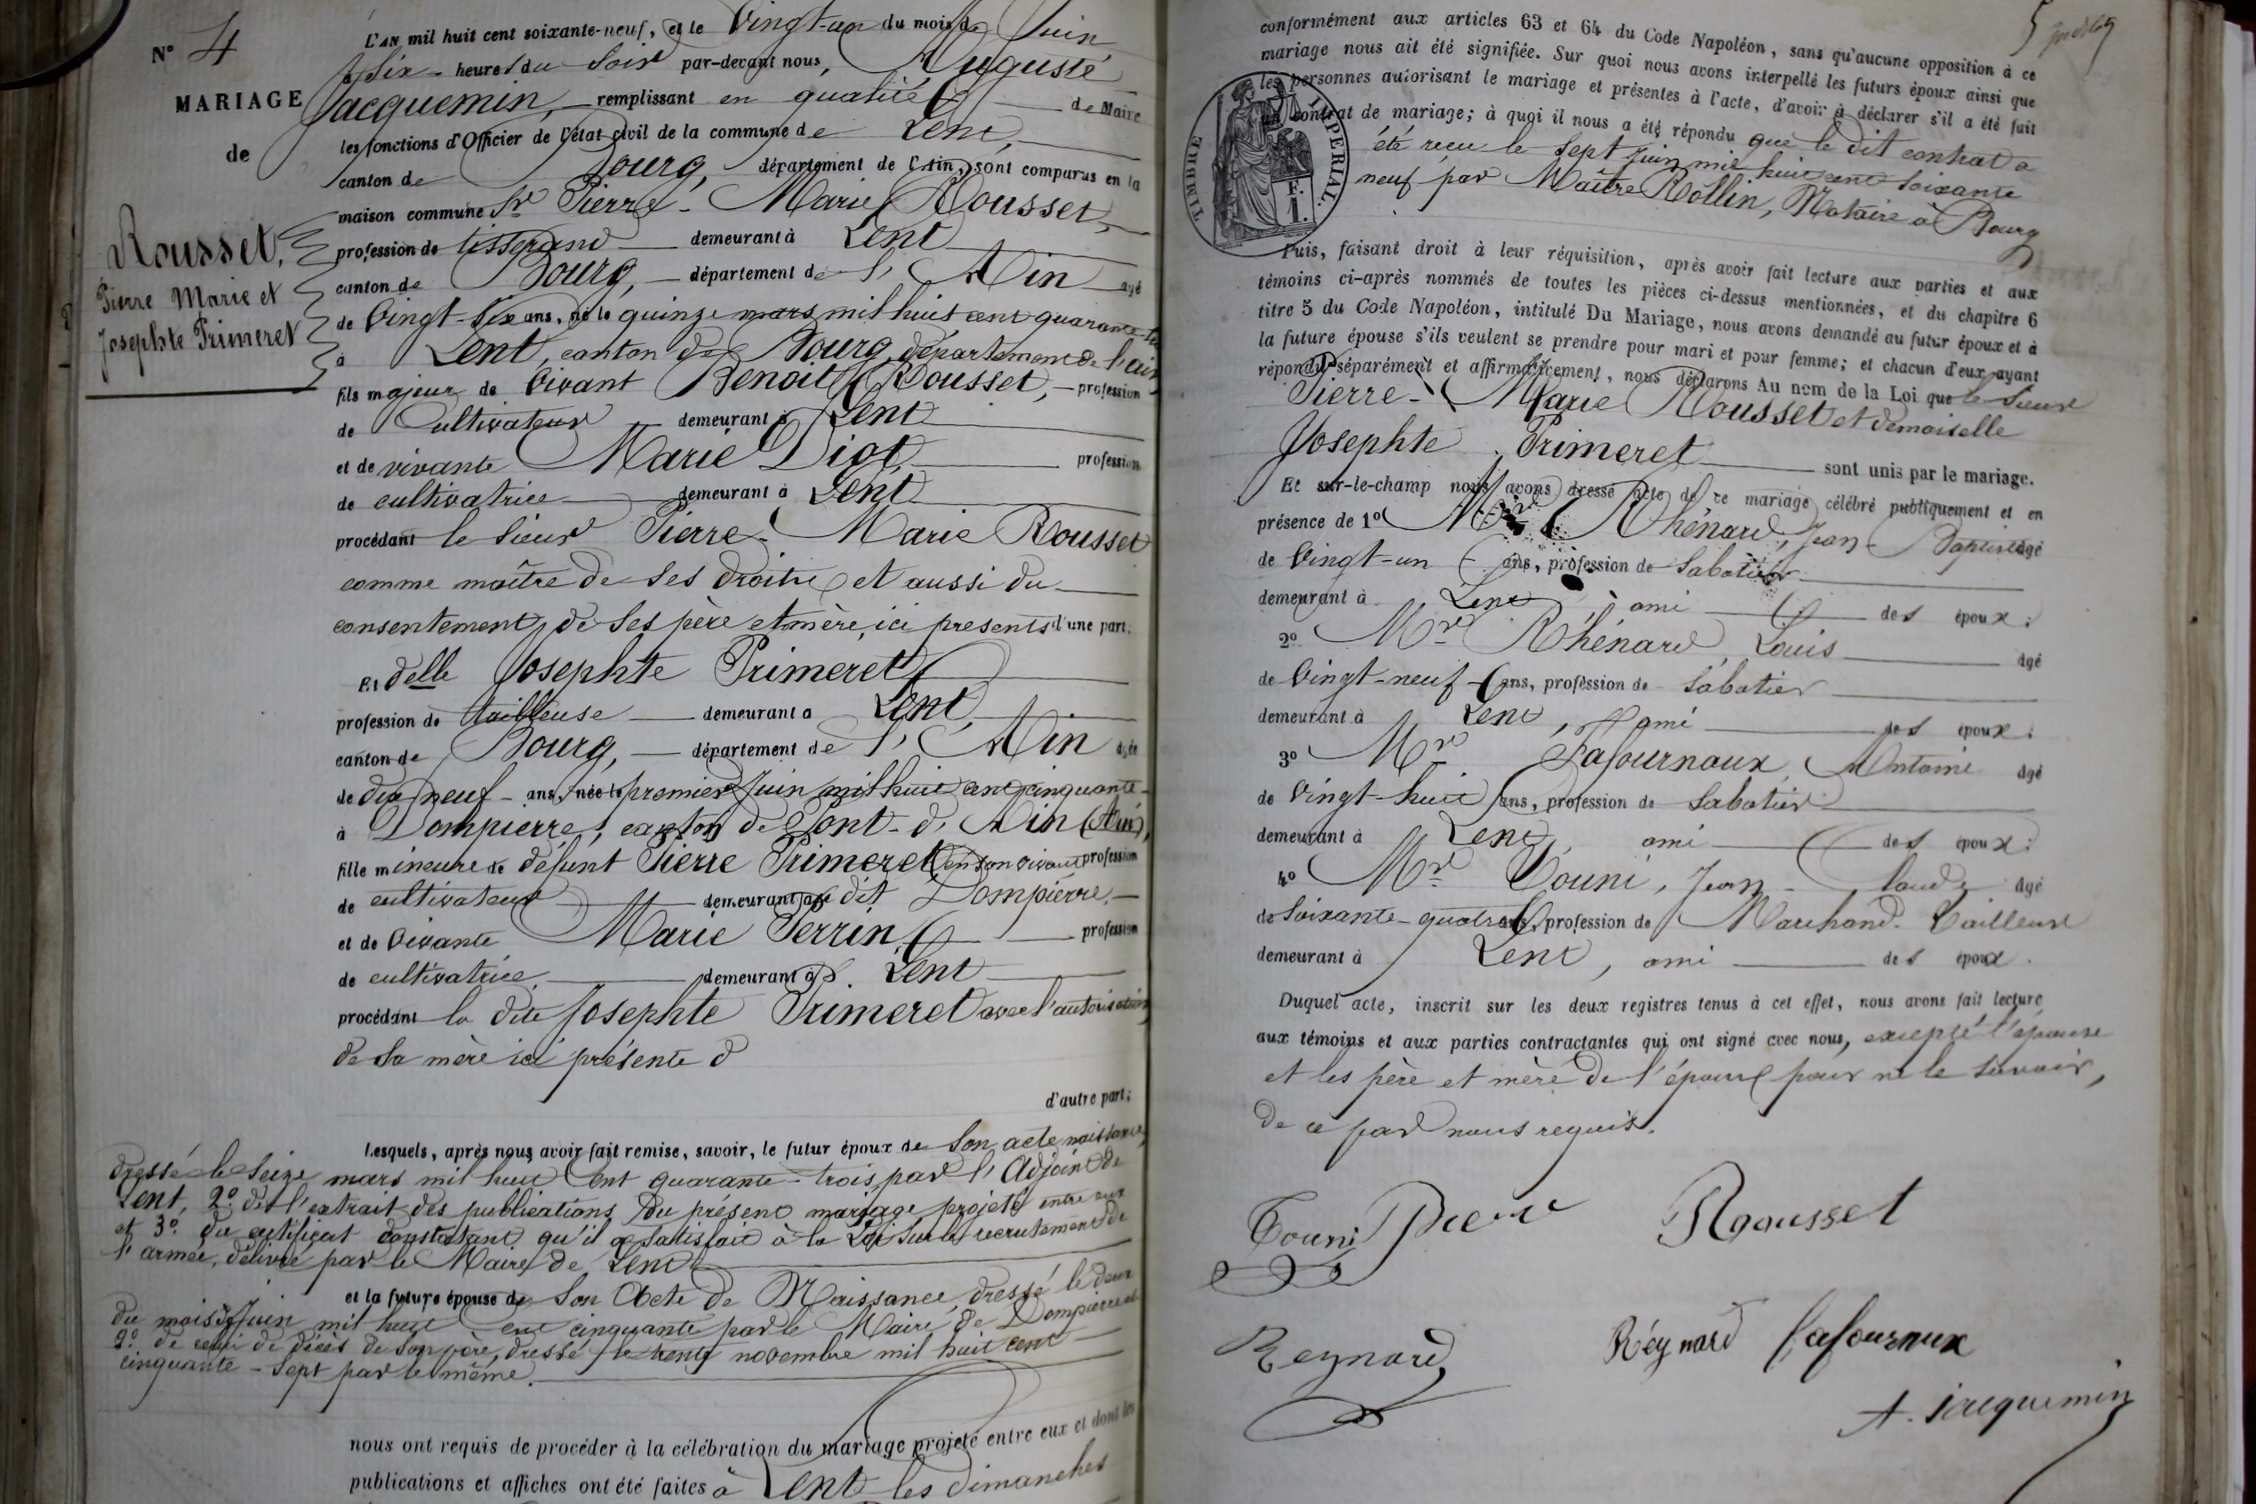 N° 4
MARIAGE
de
Rousset,
Pierre Marie et
Josephte Primeret
L'AN mil huit cent soixante-neuf, et le Vingt-un du mois de Juin
à six heures du Soir par-devant nous, Auguste
Jacquemin, remplissant en qualité de Maire
les fonctions d'Officier de l'état civil de la commune de Lent,
canton de Bourg, département de l'Ain, sont comparus en la
maison commune Sr Pierre-Marie Rousset,
profession de tisserand demeurant à Lent
canton de Bourg, département de l'Ain âgé
de Vingt-six ans, né le quinze mars mil huit cent quarante-trois
à Lent, canton de Bourg, département de l'ain
fils majeur de vivant Benoit Rousset, profession
de Cultivateur demeurant à Lent
et de vivante Marie Diot, profession
de cultivatrice demeurant à Lent
procédant le Sieur Pierre-Marie Rousset
comme maître de ses droits et aussi du
consentement de ses père et mère, ici presents d'une part.
Et delle Josephte Primeret
profession de tailleuse demeurant à Lent,
canton de Bourg, département de l'Ain âgée
de dix neuf ans, née le premier Juin mil huit cent cinquante
à Dompierre, canton de Pont-d'Ain (Ain),
fille mineure de défunt Pierre Primeret en son vivant profession
de cultivateur demeurant au dit Dompierre,
et de vivante Marie Perrin, profession
de cultivatrice demeurant à Lent
procédant la dite Josephte Primeret avec l'autorisation
de sa mère ici présente
d'autre part;
Lesquels, après nous avoir fait remise, savoir, le futur époux de Son acte naissance,
dressé le Seize mars mil huit Cent quarante-trois par l'Adjoint de
Lent, 2° de l'extrait des publications du présent mariage projeté entre eux
et 3° du certificat constatant qu'il a satisfait à la Loi sur le recrutement de
l'armée, délivré par le Maire de Lent
et la future épouse de Son Acte de Naissance, dressé le deux
du mois de Juin mil huit cent cinquante par le Maire de Dompierre et
2° de celui de décès de son père, dressé le novembre mil huit cent
cinquante-sept par le même.
nous ont requis de procéder à la célébration du mariage projeté entre eux et dont les
publications et affiches ont été faites à Lent les dimanches
5
conformément aux articles 63 et 64 du Code Napoléon, sans qu'aucune opposition à ce
mariage nous ait été signifiée. Sur quoi nous avons interpellé les futurs époux ainsi que
les personnes autorisant le mariage et présentes à l'acte, d'avoir à déclarer s'il a été fait
contrat de mariage; à quoi il nous a été répondu que le dit contrat a
été reçu le Sept Juin mil huit cent soixante
neuf par Maître Rollin, Notaire à Bourg
TIMBRE IMPÉRIAL.
E.
I.
Puis, faisant droit à leur réquisition, après avoir fait lecture aux parties et aux
témoins ci-après nommés de toutes les pièces ci-dessus mentionnées, et du chapitre 6
titre 5 du Code Napoléon, intitulé Du Mariage, nous avons demandé au futur époux et à
la future épouse s'ils veulent se prendre pour mari et pour femme; et chacun d'eux ayant
répondu séparément et affirmativement, nous déclarons Au nom de la Loi que le Sieur
Pierre-Marie Rousset et demoiselle
Josephte Primeret sont unis par le mariage.
Et sur-le-champ nous avons dressé acte de ce mariage célébré publiquement et en
présence de 1° Mr Rhénard, Jean-Baptiste âgé
de Vingt-un ans, profession de Sabotier
demeurant à Lent ami des époux;
2° Mr Rhénard, Louis âgé
de Vingt-neuf ans, profession de Sabotier
demeurant à Lent, ami des époux;
3° Mr Lafournoux Antoine âgé
de Vingt-huit ans, profession de Sabotier
demeurant à Lent, ami des époux;
4° Mr Touni, Jean-Claude âgé
de Soixante-quatre ans, profession de Marchand-Tailleur
demeurant à Lent, ami des époux.
Duquel acte, inscrit sur les deux registres tenus à cet effet, nous avons fait lecture
aux témoins et aux parties contractantes qui ont signé avec nous, excepté l'épouse
et les père et mère de l'époux pour ne le savoir,
de ce par nous requis.
Touni Pierre Roousset
Reynard Réynard Lafournux
A. Jacquemin